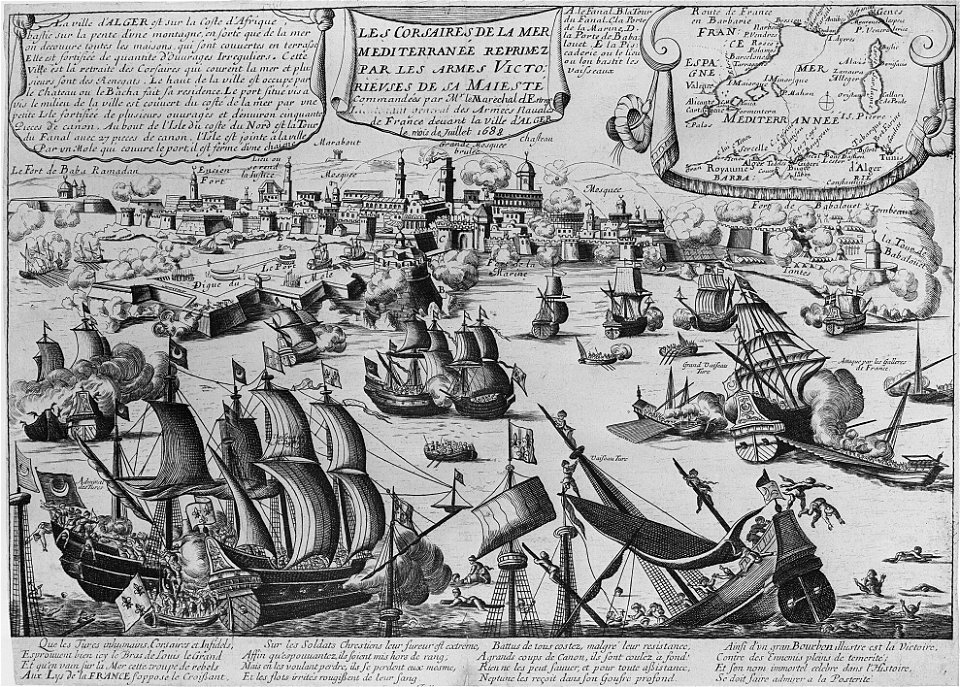 La ville d'ALGER est sur la Coste d'Afrique,
bastie sur la pente d'une montagne, en sorte que de la mer
on decouure toutes les maisons, qui sont couuertes en terrasse
Elle est fortifiée de quantité d'Ouurages Irreguliers. Cette
Ville est la retraite des Corsaires qui courent la mer et plu-
sieurs sont des Renegats. Le haut de la ville est occupé par
le Chateau ou le Bacha fait sa residence. Le port situé vis a
vis le milieu de la ville est couuert du costé de la mer par une
petite Isle fortifiée de plusieurs ouurages et d'enuiron cinquante
pieces de canon. Au bout de l'Isle du costé du Nord est la Tour
du Fanal auec 27 pieces de canon. l'Isle est jointe à la ville
Par un Mole qui couure le port, il est fermé d'une chaine
LES CORSAIRES DE LA MER
MEDITERRANÉE REPRIMEZ
PAR LES ARMES VICTO-
RIEUSES DE SA MAIESTE
Commandées par Mr. le Marechal d'Estrées
de France deuant la Ville d'ALGER
le mois de Juillet 1688
A. le Fanal. B. la Tour
du Fanal. C. la Porte
de la Marine. D.
la Porte de Baba-
louet. E. la Pis-
caderie ou le lieu
ou l'on bastit les
vaisseaux
Route de France
en Barbarie
Genes
FRAN
CE
ESPA
GNE
MER
MEDITERRANNÉE
Parpignan
P. Vendres
Rose
Palamos
Barcelonne
Valence
Alicante
C. Palos
I. Maiorque
I. Minorque
P. Mahon
I. S. Pierre
Callari
Tunis
Royaume
d'Alger
BARBA
RIE
Alger
Constantine
Le Fort de Baba Ramadan
Ancien
Fort
Lieu ou
on rend
la Justice
Marabout
Mosquée
Grande Mosquée
brulée
Chasteau
Mosquée
Fort de Babalouet
Tombeaux
La Tour de
Babalouet
Tantes
Le Port
Isle
Digue du
Porte de la
Marine
B
Grand Vaisseau
Turc
Attaqué par les Galleres
de France
Admiral
des Turcs
Vaisseau Turc
Que les Turcs inhumains, Corsaires et Infidels,
Esprouuent bien icy le Bras de Louis le Grand
Et qu'en vain sur la Mer cette troupe de rebels
Aux Lys de la FRANCE s'oppose le Croissant.
Sur les Soldats Chrestiens leur fureur est extreme,
Affin qu'espouuantez, ils soient mis hors de rang,
Mais en les voulant perdre, ils se perdent eux mesme,
Et les flots irrités rougissent de leur sang
Battus de tous costez, malgré leur resistance,
A grands coups de Canon, ils sont coulez a fond.
Rien ne les peut sauuer, et pour toute assistance,
Neptune les reçoit dans son Goufre profond.
Ainsi d'un gran Bourbon illustre est la Victoire,
Contre des Ennemis pleins de temerité;
Et son nom immortel celebre dans l'Histoire,
Se doit faire admirer a la Posterité.